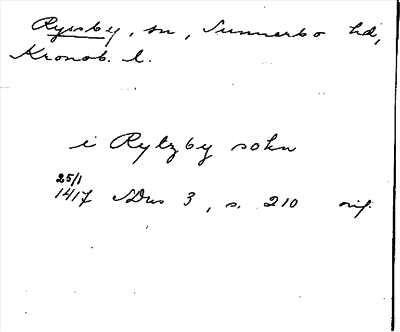 Ryssby, sn, Sunnerbo hd,
Kronob. l.
i Rytzby sokn
25/1
1417 SDns 3, s. 210 orig.